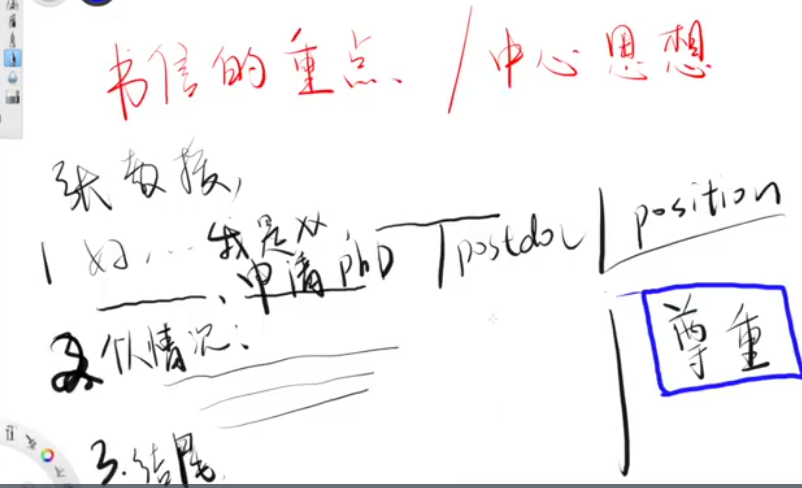 书信的重点 / 中心思想
张教授,
1 好, ... 我是XX,
、申请phD | postdoc | position
2 个人情况:
尊重
3. 结尾